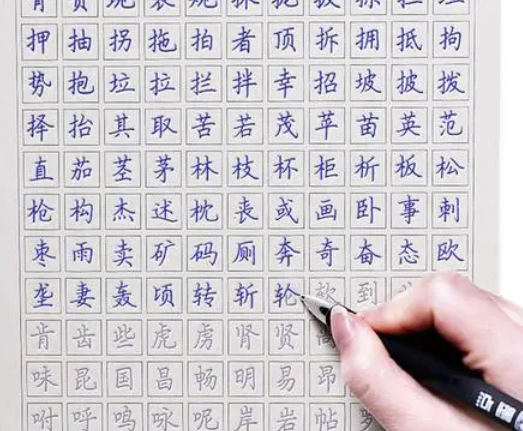 押抽拐拖拍者顶拆拥抵拘
势抱垃拉拦拌幸招坡披拨
择抬其取苦若茂苹苗英范
直茄茎茅林枝杯柜析板松
枪构杰述枕丧或画卧事刺
枣雨卖矿码厕奔奇奋态欧
垄妻轰顷转斩轮软到
肯齿些虎虏肾贤
味昆国昌畅明易昂
咐呼鸣咏呢岸岩帖